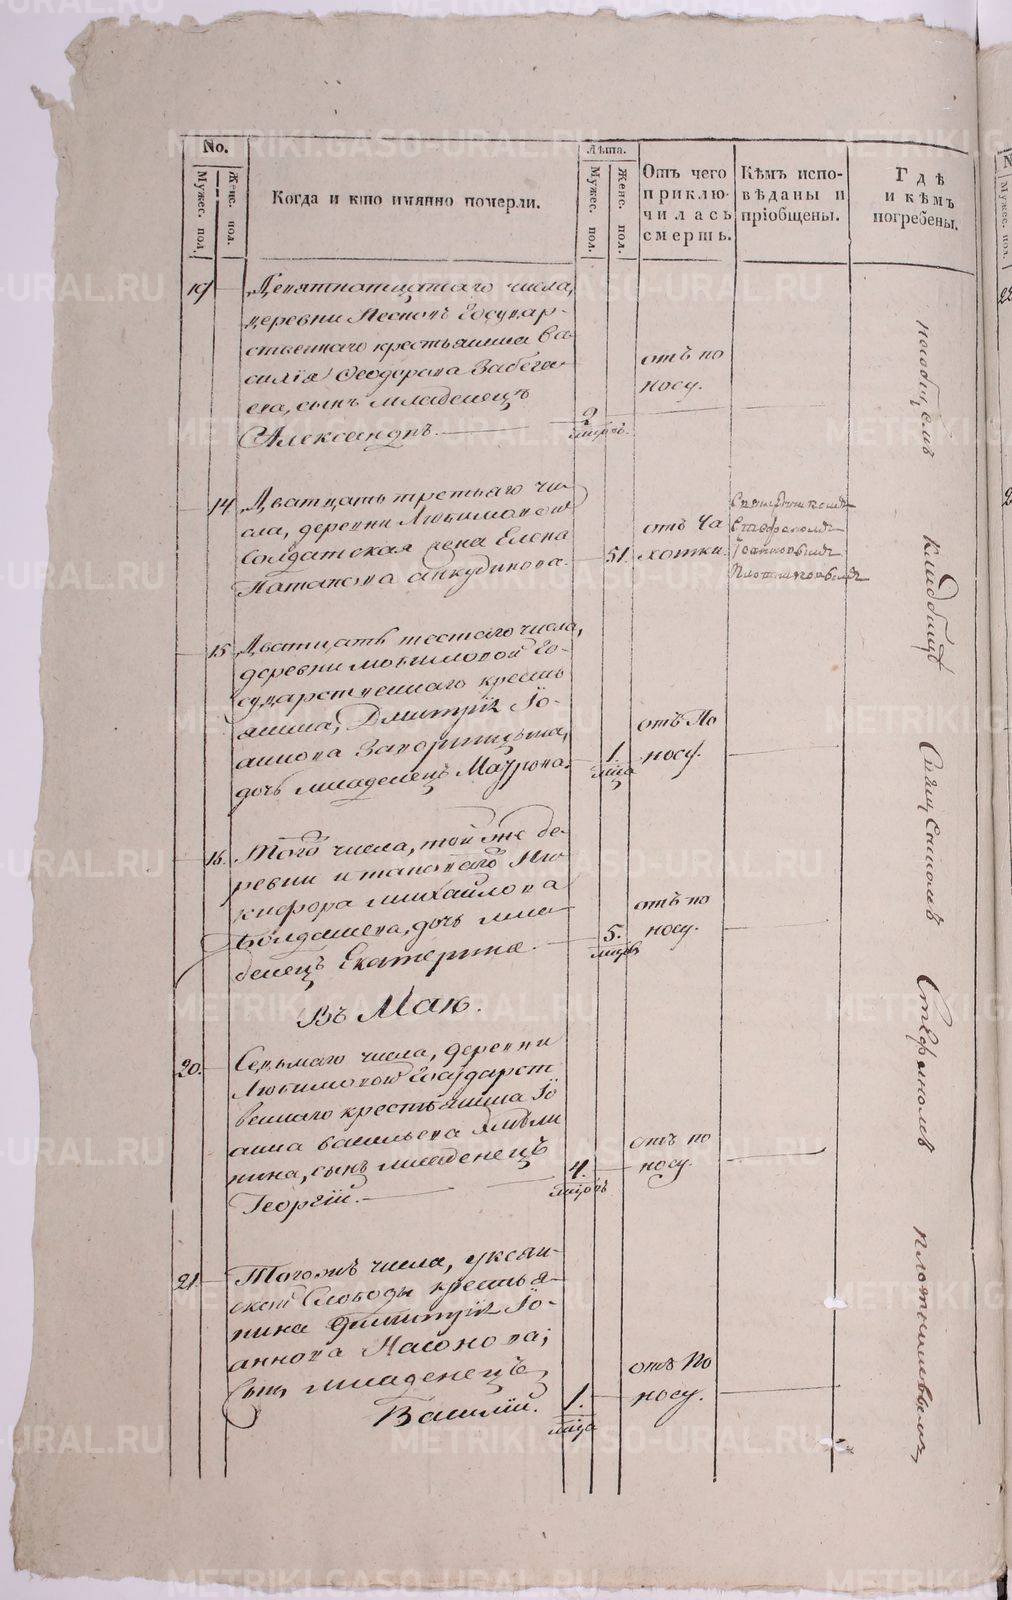 No.
Мужес. пол.
Женс. пол.
Когда и кто имянно померли.
Лѣта.
Мужес. пол.
Женс. пол.
Отъ чего
приклю-
чилась
смерть.
Кѣмъ испо-
вѣданы и
пріобщены.
Гдѣ
и кѣмъ
погребены.
19
Девятнатцатаго числа,
деревни Песковъ Государ-
ственнаго крестьянина Ва-
силія Ѳеодорова Забега-
ева, сынъ младенецъ
Александръ.
2
отъ по
носу.
14
Дватцать третьяго чи-
сла, деревни Любимовой
Солдатская жена Елена
Патапова Анкудинова.
51.
отъ Ча
хотки.
Священникомъ
Стефаномъ
Іоанновымъ
Плотниковымъ
15
Дватцать шестаго числа,
деревни Любимовой Го-
сударственнаго кресть
янина, Димитрія Іо-
аннова
дочь младенецъ Мавра.
1.
м̃ца
отъ По
носу.
16.
Того числа, той же де-
ревни и таковаго Ни-
кифора Михайлова
Болдашева, дочь мла-
денецъ Екатерина.
5.
отъ по
носу.
Въ Маѣ.
20.
Седьмаго числа, деревни
Любимовой Государст
веннаго крестьянина Іо
анна Васильева
сынъ младенецъ
Георгій.
4.
отъ по
носу.
21.
Тогожъ числа,
ской Слободы крестья-
нина Димитрія Іо-
аннова Насонова,
Сынъ младенецъ
Василій.
1.
м̃ца
отъ По
носу.
на общемъ
кладбищѣ
Священникомъ
Стефаномъ
Плотниковымъ,
METRIKI.GASO-URAL.RU